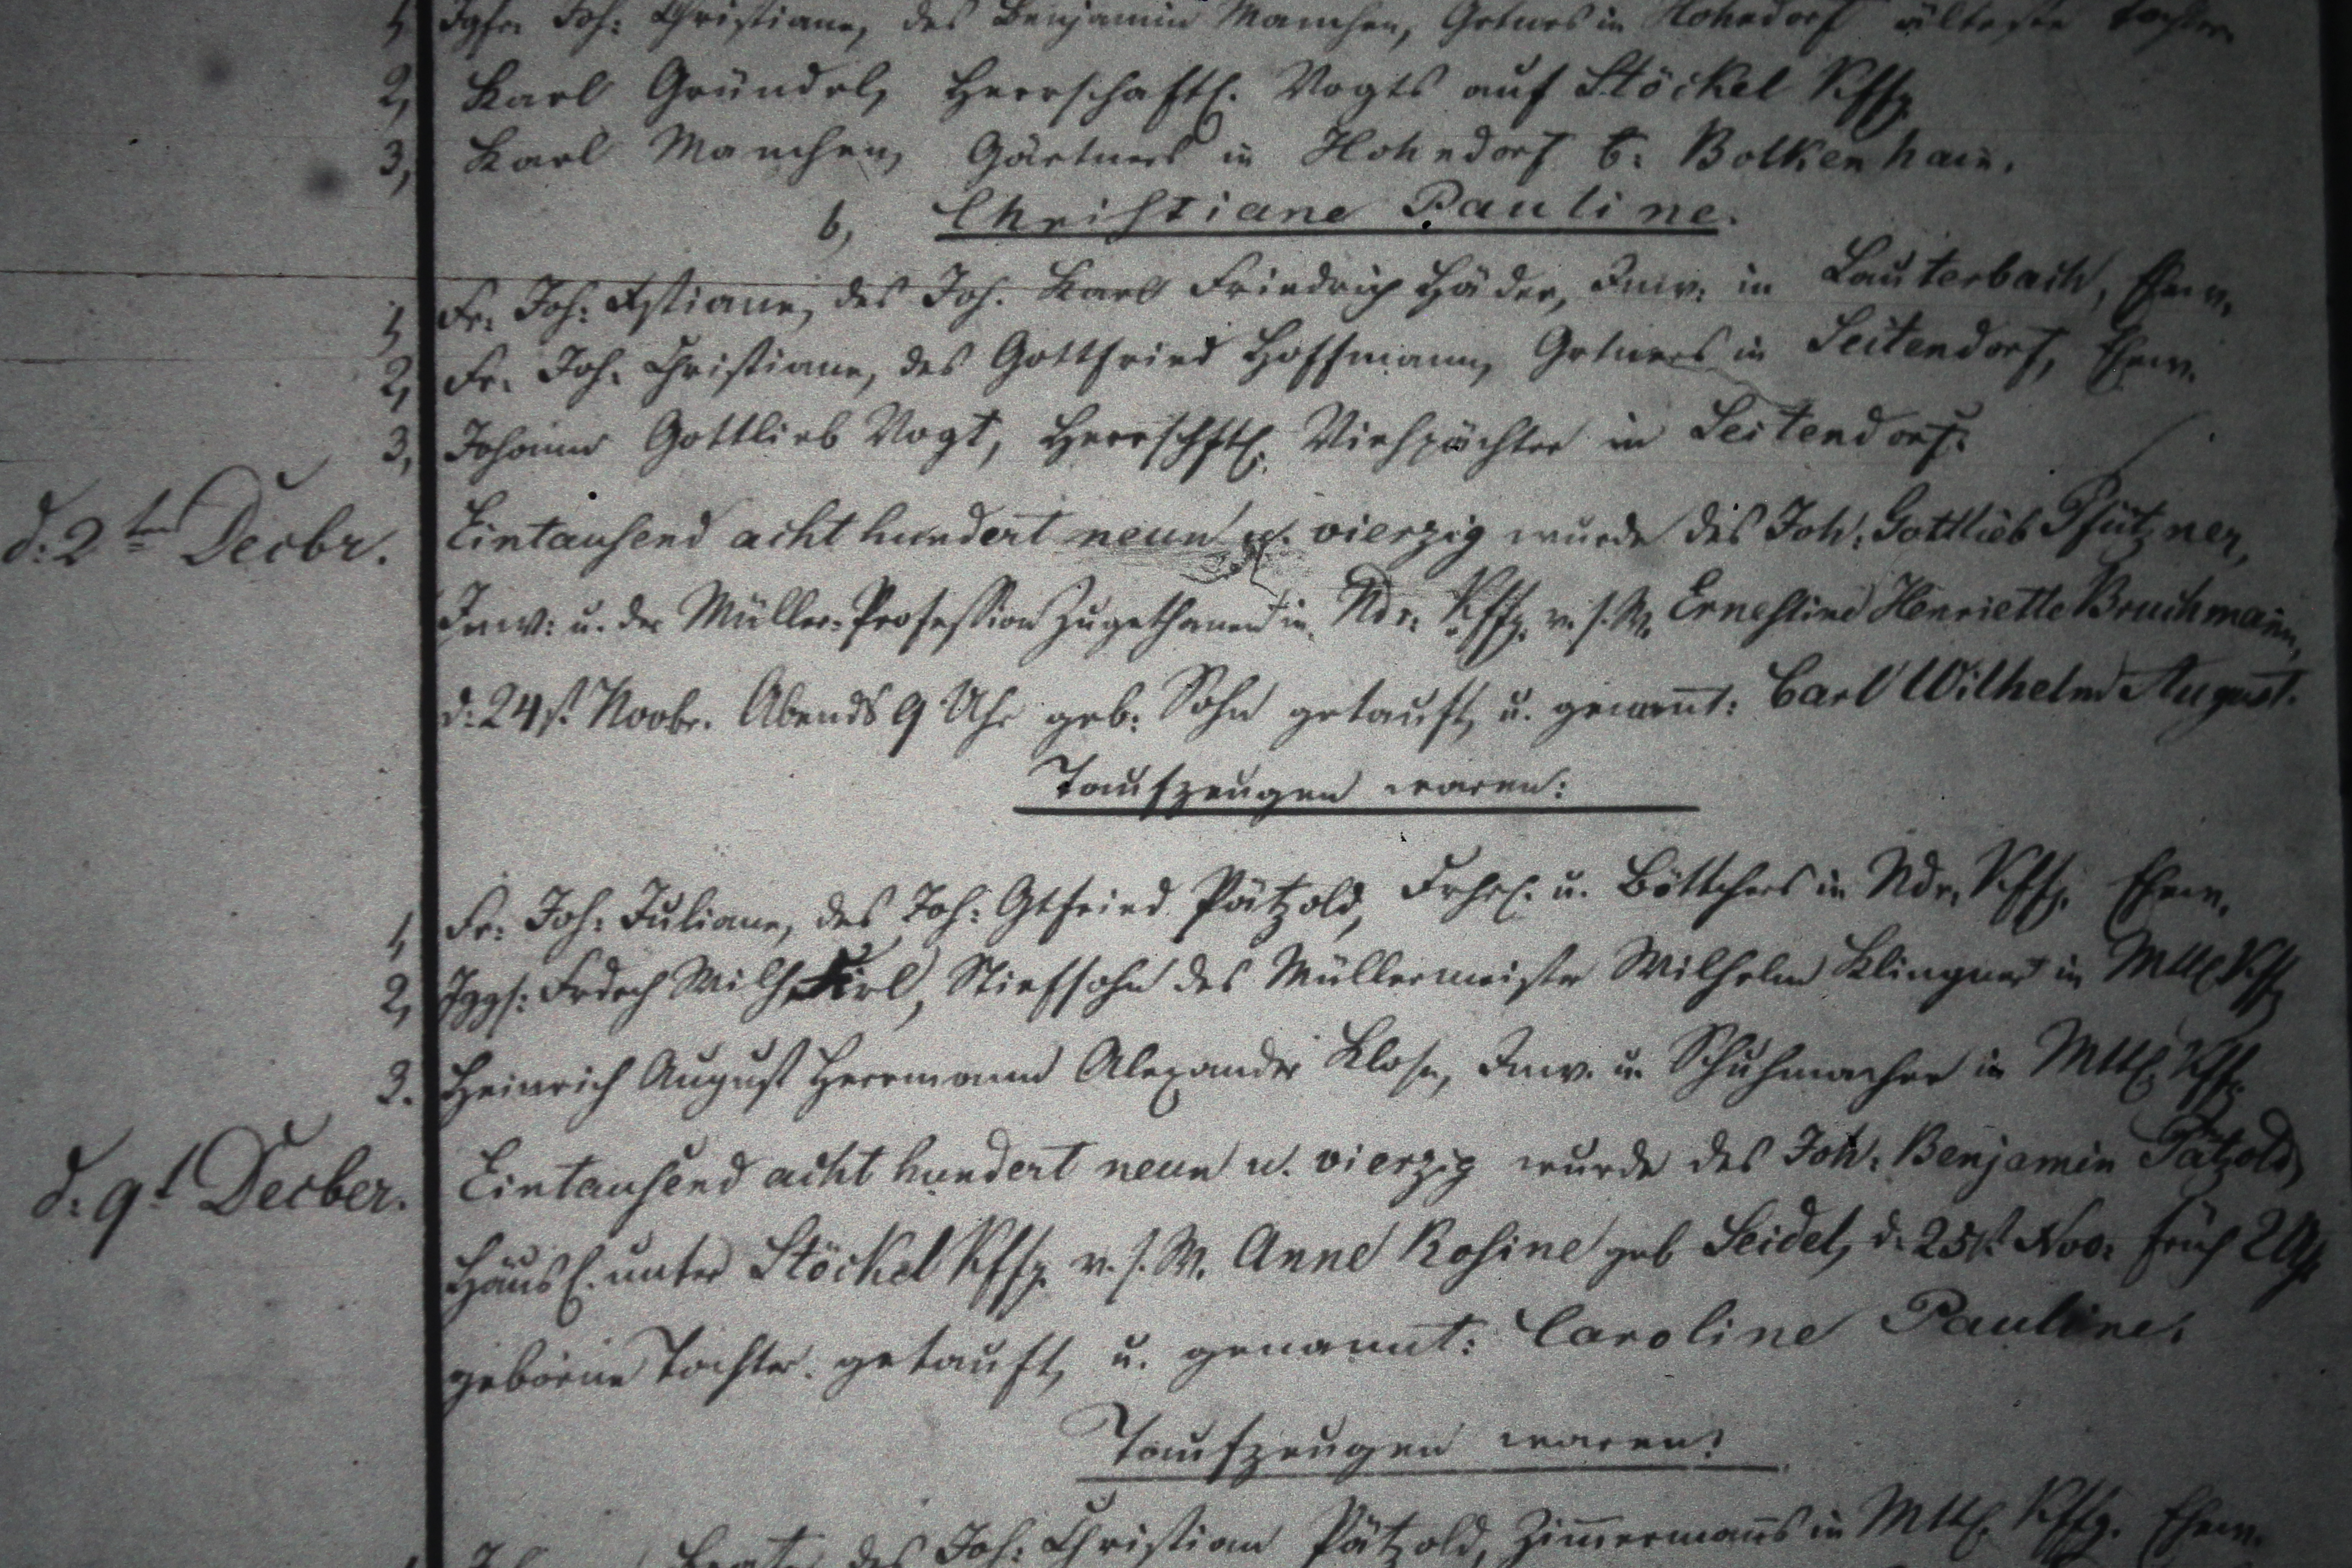 1, Jgfr. Joh: Christiane, des Benjamin Manchen, Grtners in Hohndorf älteste Tochter.
2, Karl Gründel, Herrschaftl. Vogts auf Stöckel Kffg.
3, Karl Manchen, Gärtners in Hohndorf b: Bolkenhain.
b, Christiane Pauline.
1, Fr. Joh: Xstiane, des Joh. Karl Friedrich Häder, Inw: in Lauterbach, Ehew.
2, Fr. Joh. Christiane, des Gottfried Hoffmann, Grtners in Seitendorf, Ehew.
3, Johann Gottlieb Vogt, Herrschftl. Viehpächter in Seitendorf.
d: 2t Decbr. Eintausend acht hundert neun u. vierzig wurde des Joh: Gottlieb Pfützner,
Inw: u. der Müller-Profession zugethanen in Ndr. Kffg. v. s. W. Ernestine Henriette Bruchmann,
d: 24st Novbr. Abends 9 Uhr geb: Sohn getauft, u. genannt: Carl Wilhelm August.
Taufzeugen waren:
1, Fr: Joh: Juliane, des Joh: Gtfried Pätzold, Frhsl. u. Böttchers in Ndr. Kffg. Ehew.
2, Jggs: Frdrch Wilh. Stiefsohn des Müllermeister Wilhelm Klingner in Mttl Kffg
3. Heinrich August Herrmann Alexander Klose, Inw. u. Schuhmacher in Mttl Kffg.
d: 9t Decber. Eintausend acht hundert neun u. vierzig wurde des Joh: Benjamin Pätzold,
Häusl. unter Stöckel Kffg. v. s. W. Anne Rosine geb Seidel, d. 25st Nov: früh 2 Uhr
geborne Tochter. getauft, u. genannt: Caroline Pauline.
Taufzeugen waren:
des Joh: Christian Pätzold, Zimmermanns in Mttl. Kffg. Ehew.